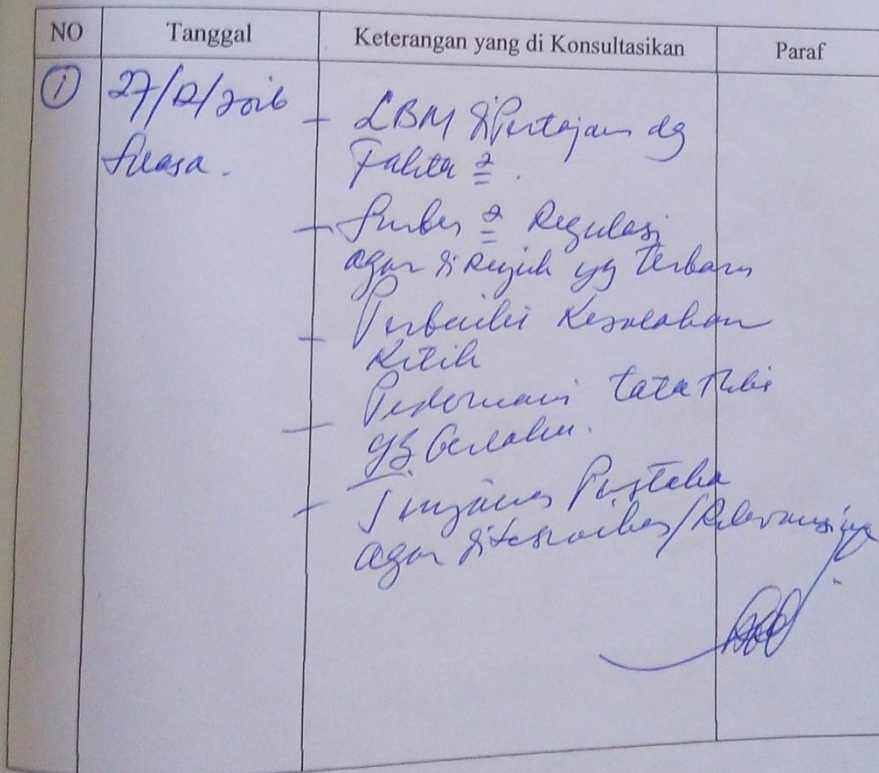 NO Tanggal Keterangan yang di Konsultasikan Paraf
1 27/12/2016
- LBM dipertajam dg
Selasa.
Fakta 2.
- Sumber 2 Regulasi
agar dirujuk yg terbaru
- Perbaiki Kesalahan
Ketik
- Pedomani tata tulis
yg berlaku.
- Tinjauan Pustaka
agar /Relevansinya